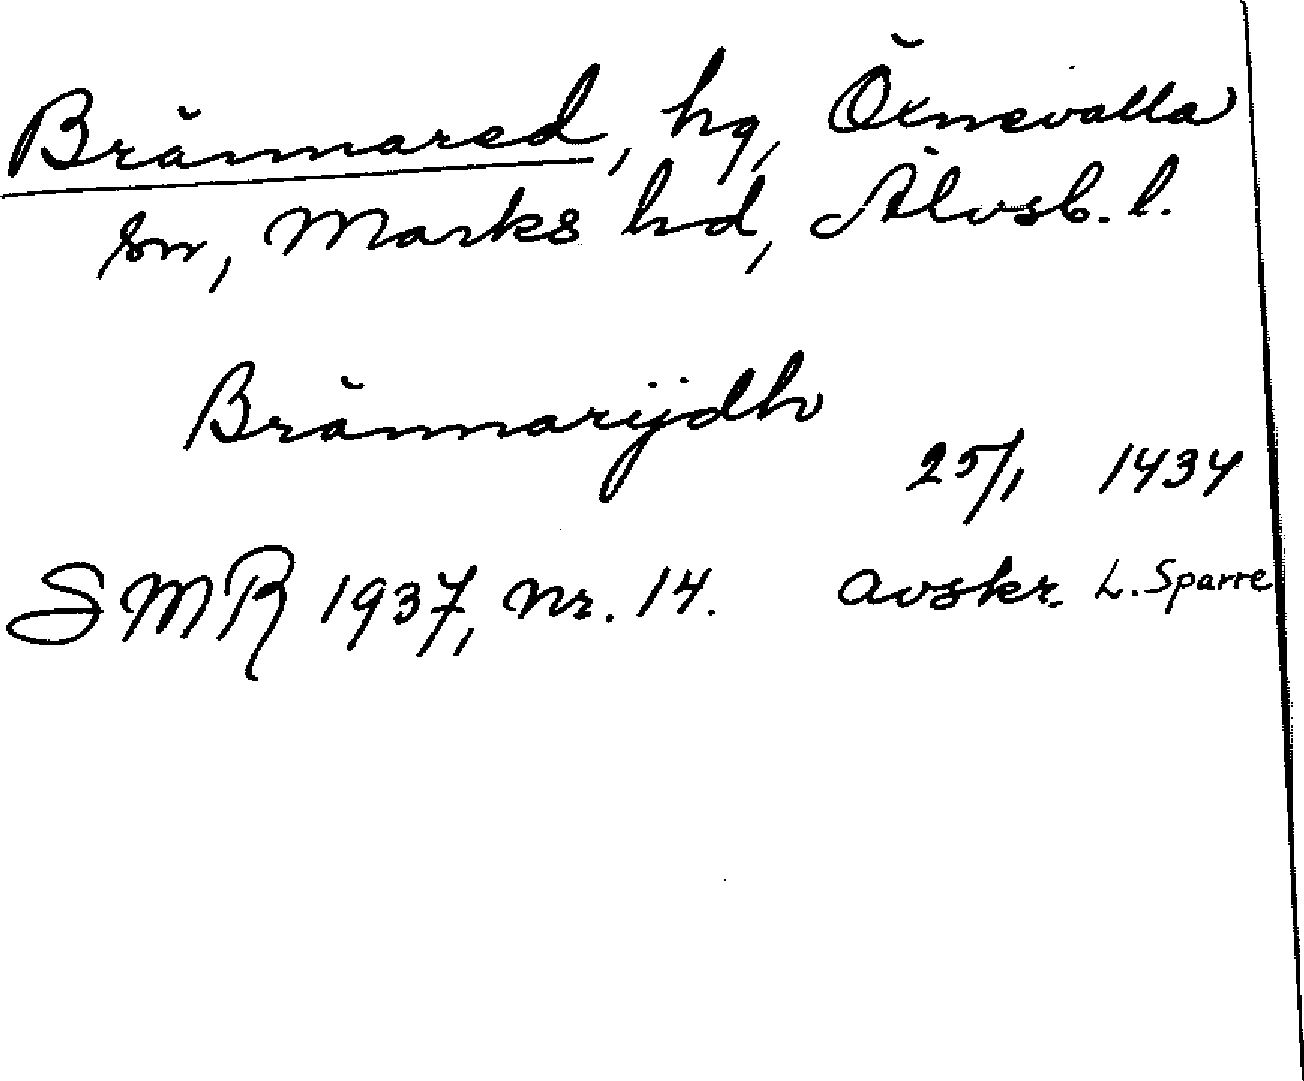 Brännared, hg, Öxnevalla
sn, Marks hd, Älvsb. l.
Brännarijdh
25/1 1434
SMR 1937, nr. 14. avskr. L. Sparre